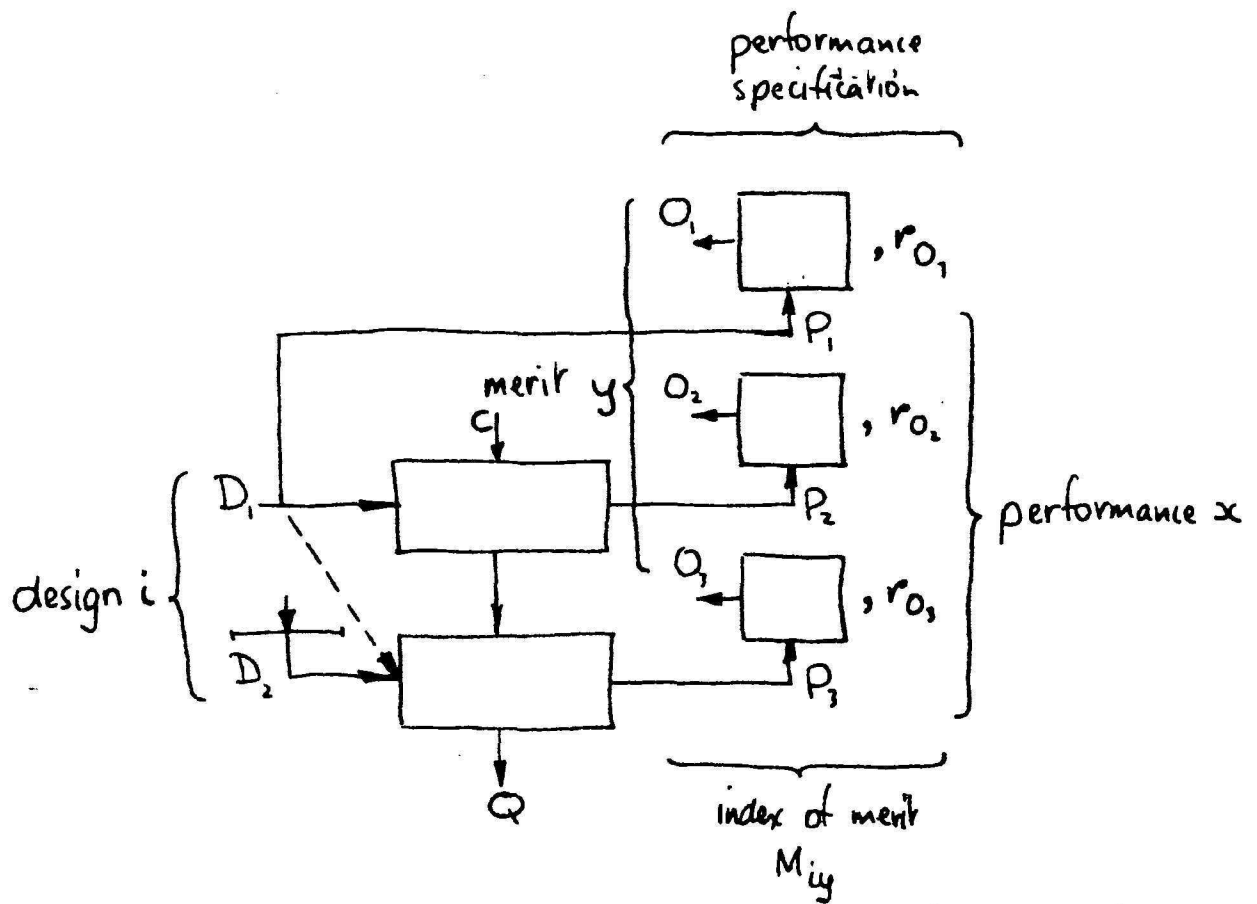 performance
specification
O₁
, r_O₁
P₁
merit y
O₂
, r_O₂
C
D₁
P₂
performance x
O₃
design i
, r_O₃
D₂
P₃
Q
index of merit
M_iy